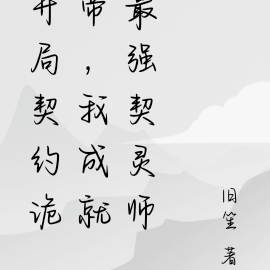 开局契约诡
帝，我成就
最强契灵师
旧笙 著